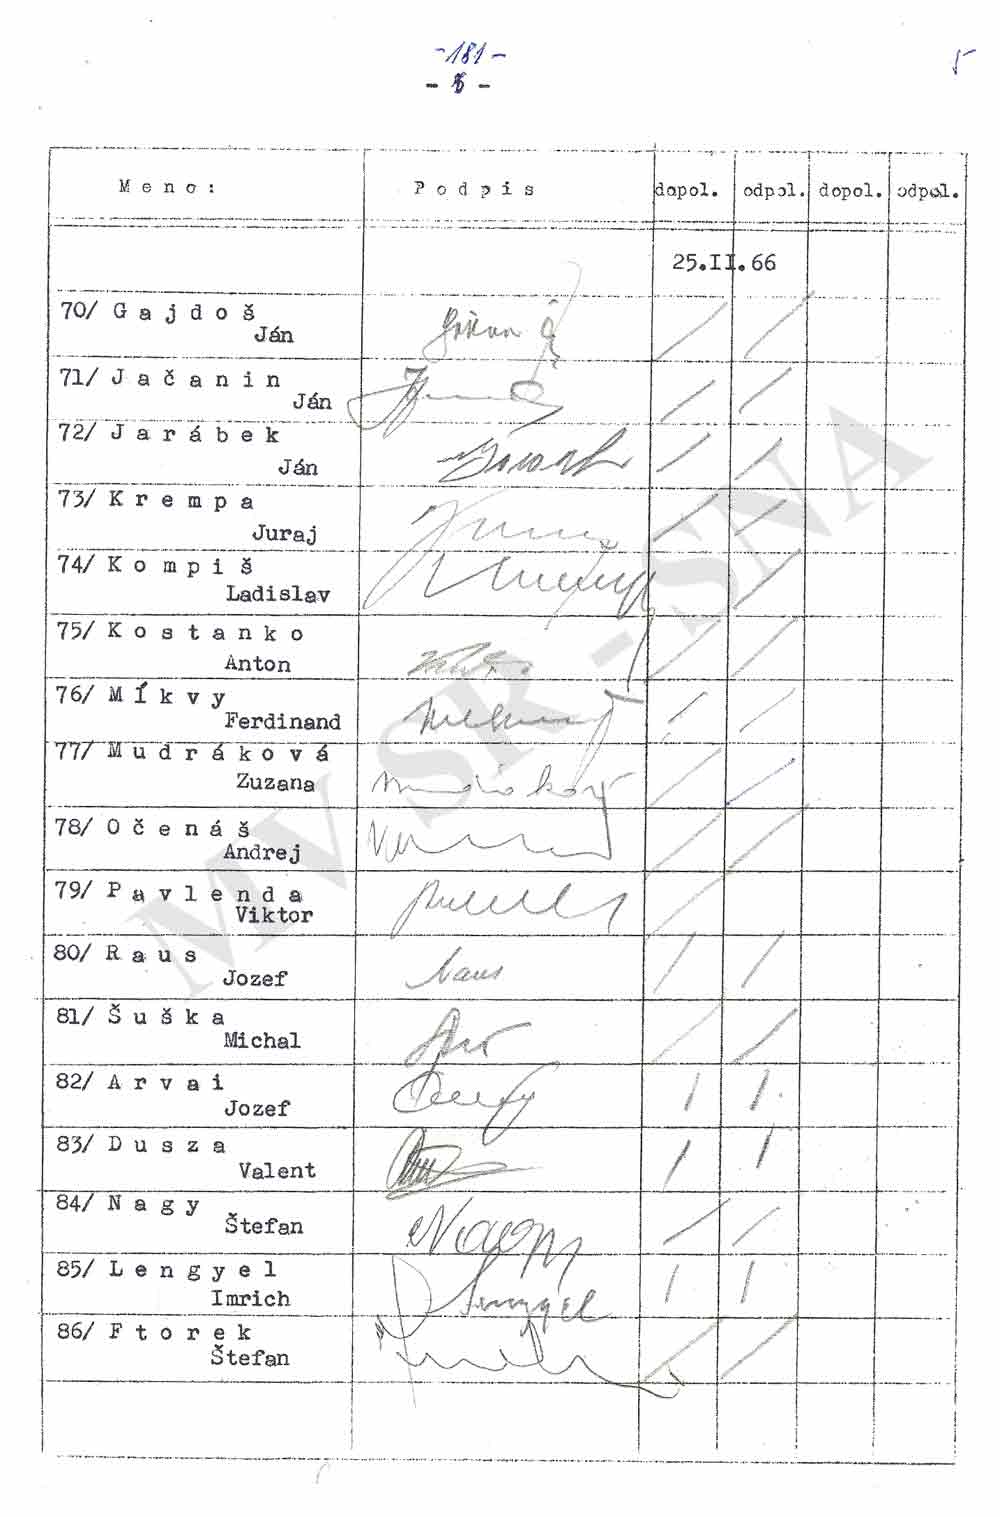 -181-
5
- 5 -
Meno: Podpis dopol. odpol. dopol. odpol.
25.II.66
70/ Gajdoš
Ján
71/ Jačanin
Ján
72/ Jarábek
Ján
73/ Krempa
Juraj
74/ Kompiš
Ladislav
75/ Kostanko
Anton
76/ Míkvy
Ferdinand
77/ Mudráková
Zuzana
78/ Očenáš
Andrej
79/ Pavlenda
Viktor
80/ Raus
Jozef
Raus
81/ Šuška
Michal
82/ Arvai
Jozef
83/ Dusza
Valent
84/ Nagy
Štefan
Nagy
85/ Lengyel
Imrich
Lengyel
86/ Ftorek
Štefan
MV SR - SNA